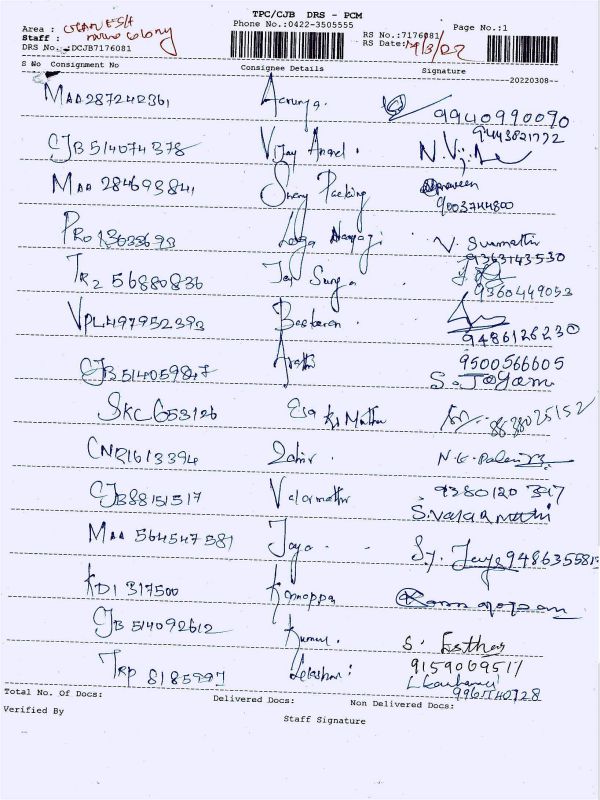 TPC/CJB DRS - PCM
Phone No.:0422-3505555
Page No.:1
Area :
colony
Staff :
RS No.:7176081
DRS No. :DCJB7176081
RS Date: 9/3/22
S No Consignment No Consignee Details Signature
--20220308--
MAA287242361 9940990090
9443821772
CJB 514074378 Vijay Anand . N. Vij
MAA 284693841 Packing Praveen
9003744800
PRO 13633693 V. Sumathi
9363143530
TR2 56880836 Jay Surya 9360449053
VPL497952393 Baskaran . 9486126230
CJB 514059847 Arathi 9500566605
S. Jayam
SKC 653126 Muthu 8838025152
CNR1613394 Zahir . N.E. Palani
CJB88151517 Valarmathi 9380120347
S. Valarmathi
MAA 564547581 Jaya . S.J. Jaya 948635581
KDI 317500 Kannappa
CJB 514092612 Kumar . S. Esther
9159069517
TRP 8185997
9965140728
Total No. Of Docs: Delivered Docs: Non Delivered Docs:
Verified By Staff Signature